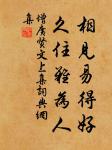 相見易得好
久住難為人
增廣賢文上集詞典網
集